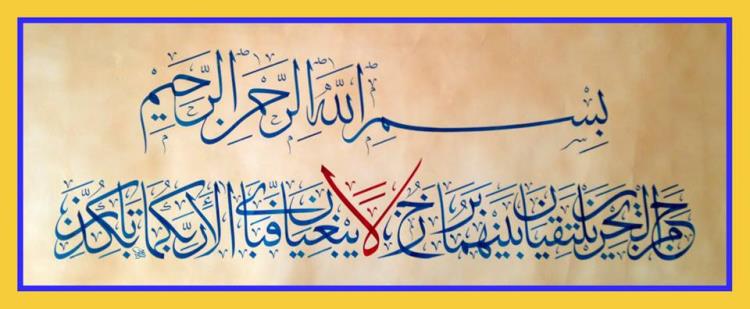 بِسْمِ اللَّهِ الرَّحْمَٰنِ الرَّحِيمِ
مَرَجَ الْبَحْرَيْنِ يَلْتَقِيَانِ بَيْنَهُمَا بَرْزَخٌ لَا يَبْغِيَانِ فَبِأَيِّ آلَاءِ رَبِّكُمَا تُكَذِّبَانِ